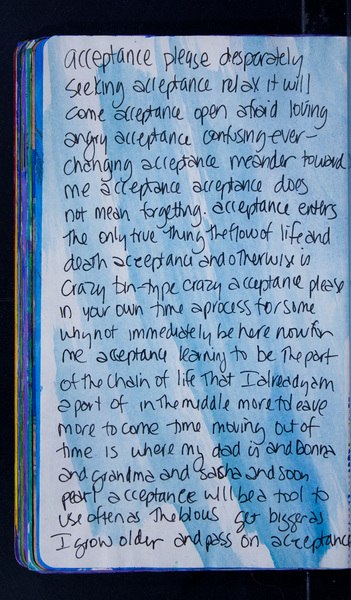 acceptance please desparately
seeking acceptance relax it will
come acceptance open afraid loving
angry acceptance confusing ever-
changing acceptance meander toward
me acceptance acceptance does
not mean forgetting. acceptance enters
the only true thing the flow of life and
death acceptance and otherwise in
crazy tin-type crazy acceptance please
in your own time a process for some
why not immediately be here now for
me acceptance learning to be the part
of the chain of life that I already am
a part of in the middle more to leave
more to come time moving out of
time is where my dad is and Donna
and grandma and Sasha and soon
pearl acceptance will be a tool to
use often as the blows get bigger as
I grow older and pass on acceptance